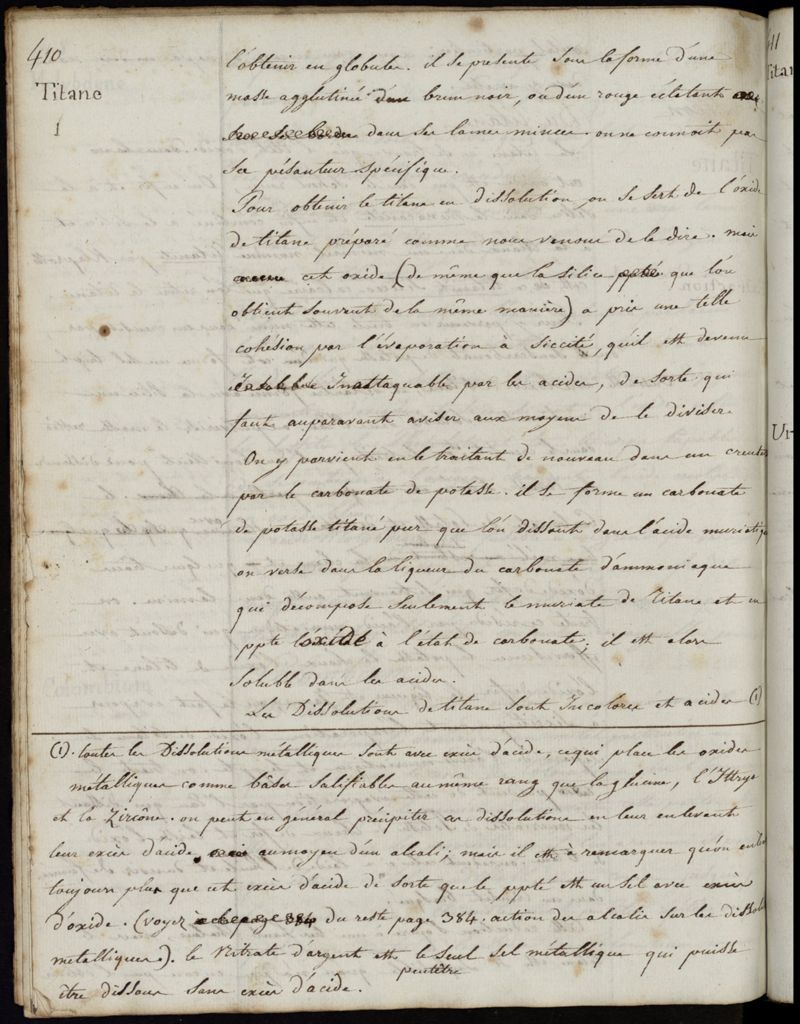 410
Titane
1
l'obtenir en globule. il se presente sous la forme d'une
masse agglutinée d'un brun noir, ou d'un rouge éclatant
dans ses lames minces. on ne connoit pas
sa pésanteur spécifique.
Pour obtenir le titane en dissolution on se sert de l'oxide
de titane préparé comme nous venons de le dire. mais
cet oxide (de même que la silice que l'on
obtient souvent de la même manière) a pris une telle
cohésion par l'évaporation à siccité, qu'il est devenu
Inattaquable par les acides, de sorte qu'il
faut auparavant aviser aux moyens de le diviser.
On y parvient en le traitant de nouveau dans un creuset
par le carbonate de potasse. il se forme un carbonate
de potasse titané pur que l'on dissout dans l'acide muriatique
on verse dans la liqueur du carbonate d'ammoniaque
qui décompose seulement le muriate de Titane et en
ppte l'oxide à l'état de carbonate; il est alors
soluble dans les acides.
Les Dissolutions de titane sont Incolores et acides (1)
(1). toutes les Dissolutions métalliques sont avec excès d'acide, ce qui place les oxides
métalliques comme bâses salifiables au même rang que la glucine, l'Ittrya
et la Zircône. on peut en général précipiter ces dissolutions en leur enlevant
leur excès d'acide au moyen d'un alcali; mais il est à remarquer qu'on enleve
toujours plus que cet excès d'acide de sorte que le ppté est un sel avec excès
d'oxide. (voyez du reste page 384. action des alcalis sur les dissol.
métalliques). le Nitrate d'argent est le seul sel métallique qui puisse
peutêtre
être dissous sans excès d'acide.
411
Titan
Ur